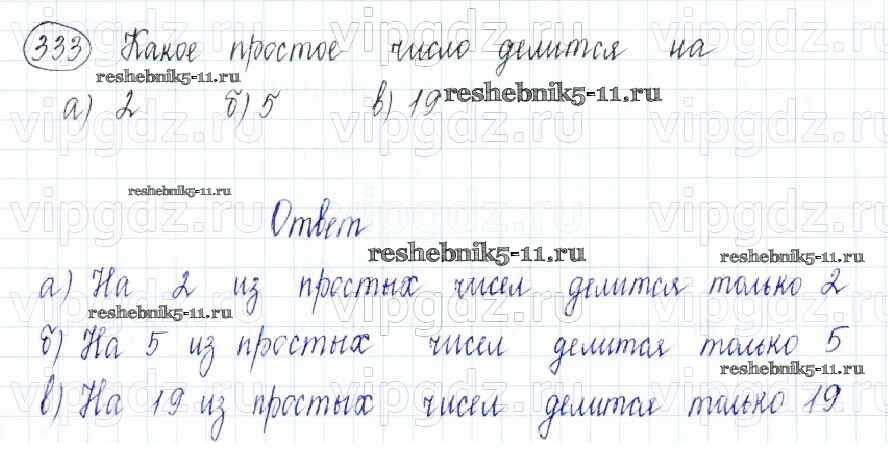 333 Какое простое число делится на
reshebnik5-11.ru
а) 2 б) 5 в) 19 reshebnik5-11.ru
vipgdz.ru vipgdz.ru vipgdz.ru
reshebnik5-11.ru
Ответ
reshebnik5-11.ru
reshebnik5-11.ru
а) На 2 из простых чисел делится только 2
reshebnik5-11.ru
б) На 5 из простых чисел делится только 5
reshebnik5-11.ru
в) На 19 из простых чисел делится только 19